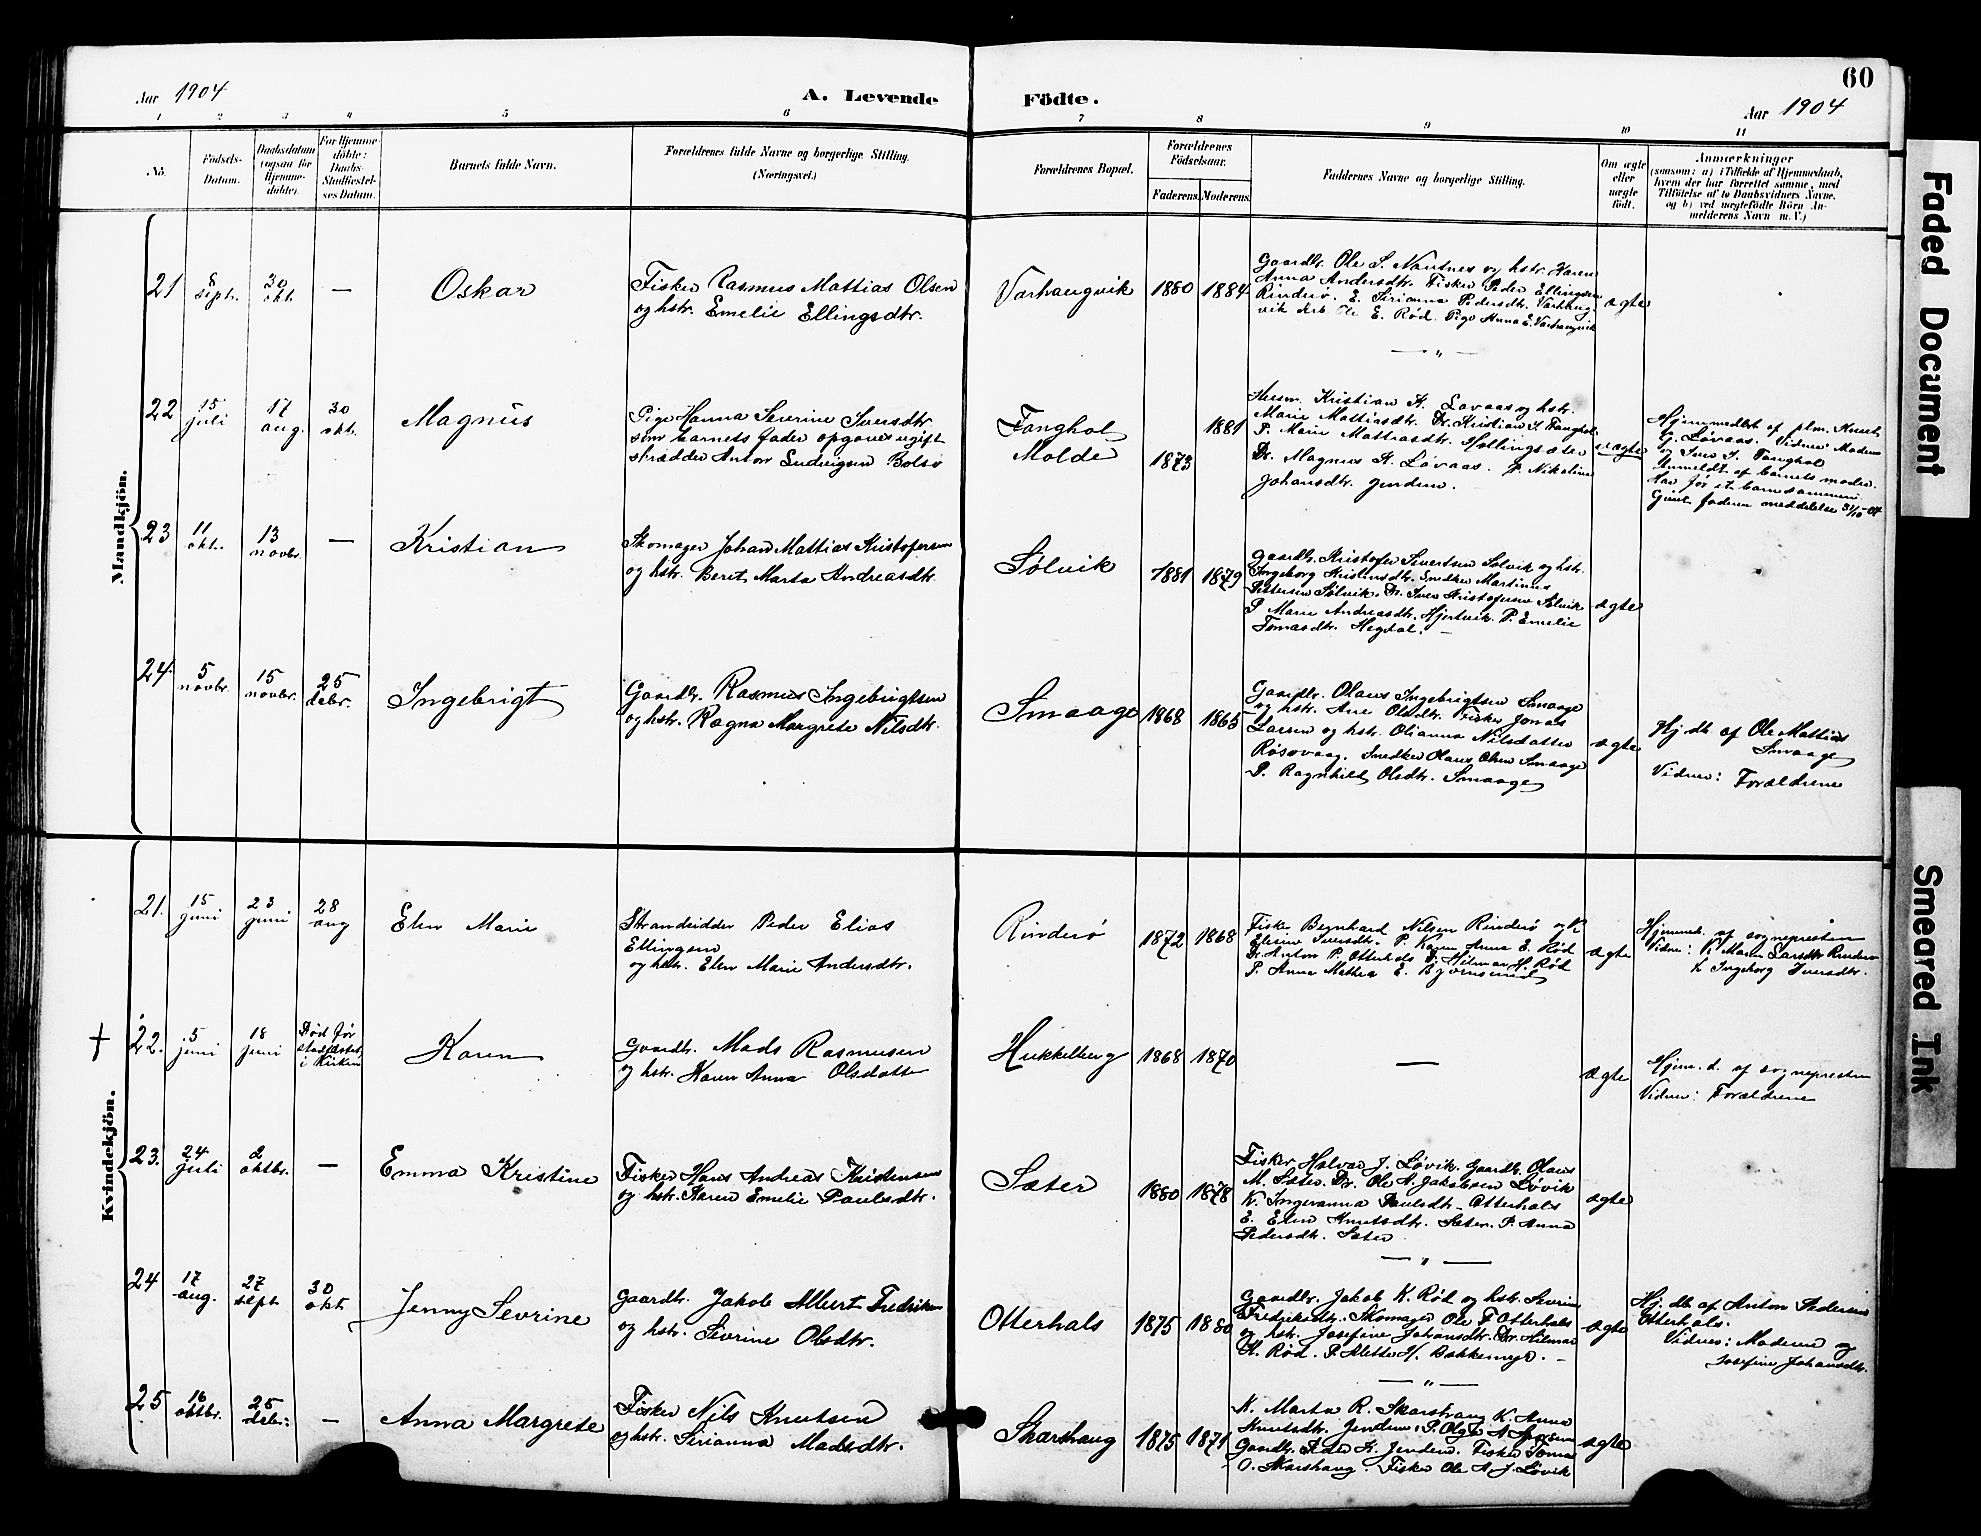 60
Aar 1904
A. Levende
Födte.
Aar 1904
1 2 3 4 5 6 7 8 9 10 11
No.
Födsels-
Datum.
Daabsdatum
(ogsaa for
Hjemme-
döbte).
For Hjemme-
döbte:
Daabs-
Stadfæstel-
ses Datum.
Barnets fulde Navn.
Forældrenes fulde Navne og borgerlige Stilling.
(Næringsvei.)
Forældrenes Bopæl.
Forældrenes
Födselsaar.
Faderens.
Moderens.
Faddernes Navne og borgerlige Stilling.
Om ægte
eller
uægte
födt.
Anmærkninger
(saasom: a) i Tilfælde af Hjemmedaab,
hvem der har forrettet samme, med
Tilföielse af to Daabsvidners Navne,
og b) ved uægtefödte Börn An-
melderens Navn m. V.)
Mandkjön.
21
8 sept.
30 okt.
—
Oskar
Fisker Rasmus Mattias Olsen
og hstr. Emelie Ellingsdtr.
Varhaugvik
1880
1884
Gaardbr. Ole S. Nautnes og hstr. Karen
Anna Andersdtr. Fisker Peder Ellingsen
Rinderø. E. Sirianna Pedersdtr. Varhaug-
vik Ole E. Rød. Pige Anna E. Varhaugvik
— " —
ægte
22
15 juli
17 aug.
30 okt.
Magnus
Pige Hanna Severine Iversdtr.
som barnets fader opgives ugift
skrædder Anton Bolsø
Tanghol
Molde
1873
1881
Kristian K. Løvaas og hstr.
Marie Mattiasdtr. Dr. Kristian I. Tanghol
P. Marie Mattiasdtr. Hollingsæter
Dr. Magnus K. Løvaas. P. Nikoline
Johansdtr. Jendem.
uægte
Hjemmedøbt af Knut
G. Løvaas. Vidner: Moderen
og Iver I. Tanghol
Anmeldt af barnets moder.
Har før et barn sammen.
Givet faderen meddelelse 31/10-04
23
11 okt.
13 novbr.
—
Kristian
Skomager Johan Mattias Kristofersen
og hstr. Beret Marta Andreasdtr.
Sølvik
1881
1879
Gaardbr. Kristofer Sivertsen Sølvik og hstr.
Ingeborg Kristensdtr. Snedker Martinus
Petersen Sølvik. Dr. Iver Kristofersen Sølvik
P. Marie Andreasdtr. Hjertvik. P. Emelie
Tomasdtr. Hegdal. —
ægte
24.
5 novbr.
15 novbr.
25 debr.
Ingebrigt
Gaardbr. Rasmus Ingebrigtsen
og hstr. Ragna Margrete Nilsdtr.
Smaage
1868
1865
Gaardbr. Olaus Ingebrigtsen Smaage
og hstr. Ane Olsdtr. Fisker Jonas
Larsen og hstr. Olianna Nilsdatter
Røsovaag. Snedker Olaus Olsen Smaage
P. Ragnhild Olsdtr. Smaage
ægte
Hj. db. af Ole Mattias
Smaage
Vidner: Forældrene
Kvindekjön.
21.
15 juni
23 juni
28 aug
Elen Marie
Strandsidder Peder Elias
Ellingsen
og hstr. Elen Marie Andersdtr.
Rinderø
1872
1868
Fisker Bernhard Nilsen Rinderø og K
Elesine Iversdtr. P. Karen Anna E. Rød
Dr. Anton P. Otterhals Dr. Hilmar H. Rød
P. Anna Mathea E. Bjørnsund
ægte
Hjemmed. af sognepresten
Vidner: K. Maren Larsdtr. Rinderø
K. Ingeborg Iversdtr.
+
22.
5 juni
18 juni
Død før
stadfæstet
i Kirken
Karen
Gaardbr. Mads Rasmusen
og hstr. Karen Anna Olsdatter
Hukkelberg
1868
1870
—
ægte
Hjem. d. af sognepresten
Vidner: Forældrene
23.
24 juli
2 oktbr.
—
Emma Kristine
Fisker Hans Andreas Kristensen
og hstr. Karen Emelie Paulsdtr.
Sæter
1880
1878
Fisker Halvar J. Løvik. Gaardbr. Olaus
M. Sæter. Dr. Ole A. Jakobsen Løvik
K. Ingeranna Paulsdtr. Otterhals
E. Elen Knutsdtr. Sæter. P. Anna
Pedersdtr. Sæter
— " —
ægte
24
17 aug.
27 sept
30 okt
Jenny Sevrine
Gaardbr. Jakob Albert Fredriksen
og hstr. Sivrine Olsdtr.
Otterhals
1875
1880
Gaardbr. Jakob K. Rød og hstr. Sevrine
Fredriksdtr. Skomager Ole F. Otterhals
og hstr. Josefine Johansdtr. Dr. Hilmar
H. Rød. P. Alette H. Bakkemyr. —
— " —
ægte
Hj. db. af Anton Pedersen
Otterhals.
Vidner: Moderen og
Josefine Johansdtr.
25
16 oktbr.
25 debr.
—
Anna Margrete
Fisker Nils Knutsen
og hstr. Sirianna Madsdtr.
Skarshaug
1875
1871
K. Marta R. Skarshaug K. Anna
Knutsdtr. Jendem. P. Olga A.
Gaardbr. Peder K. Jendem. Fisker Tomas
O. Skarshaug. Fisker Ole A. J. Løvik
ægte
Faded Document
Smeared Ink